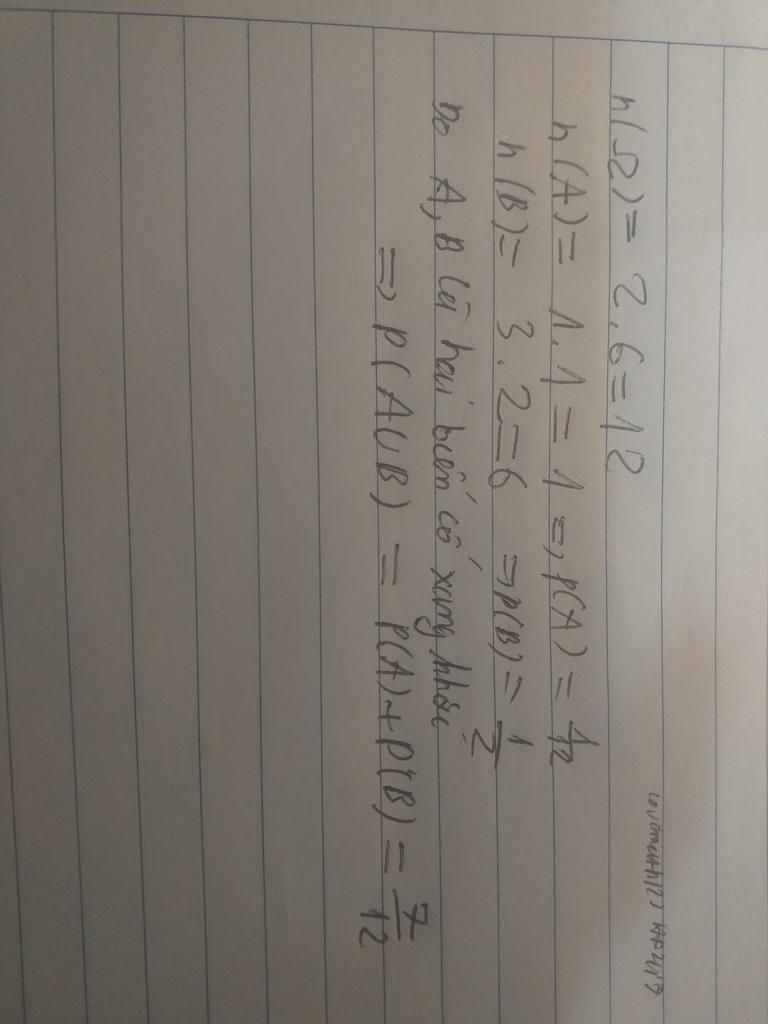 n(Ω) = 2.6 = 12
n(A) = 1.1 = 1 => P(A) = 1/12
n(B) = 3.2 = 6 => P(B) = 1/2
Do A, B là hai biến cố xung khắc
=> P(A∪B) = P(A) + P(B) = 7/12